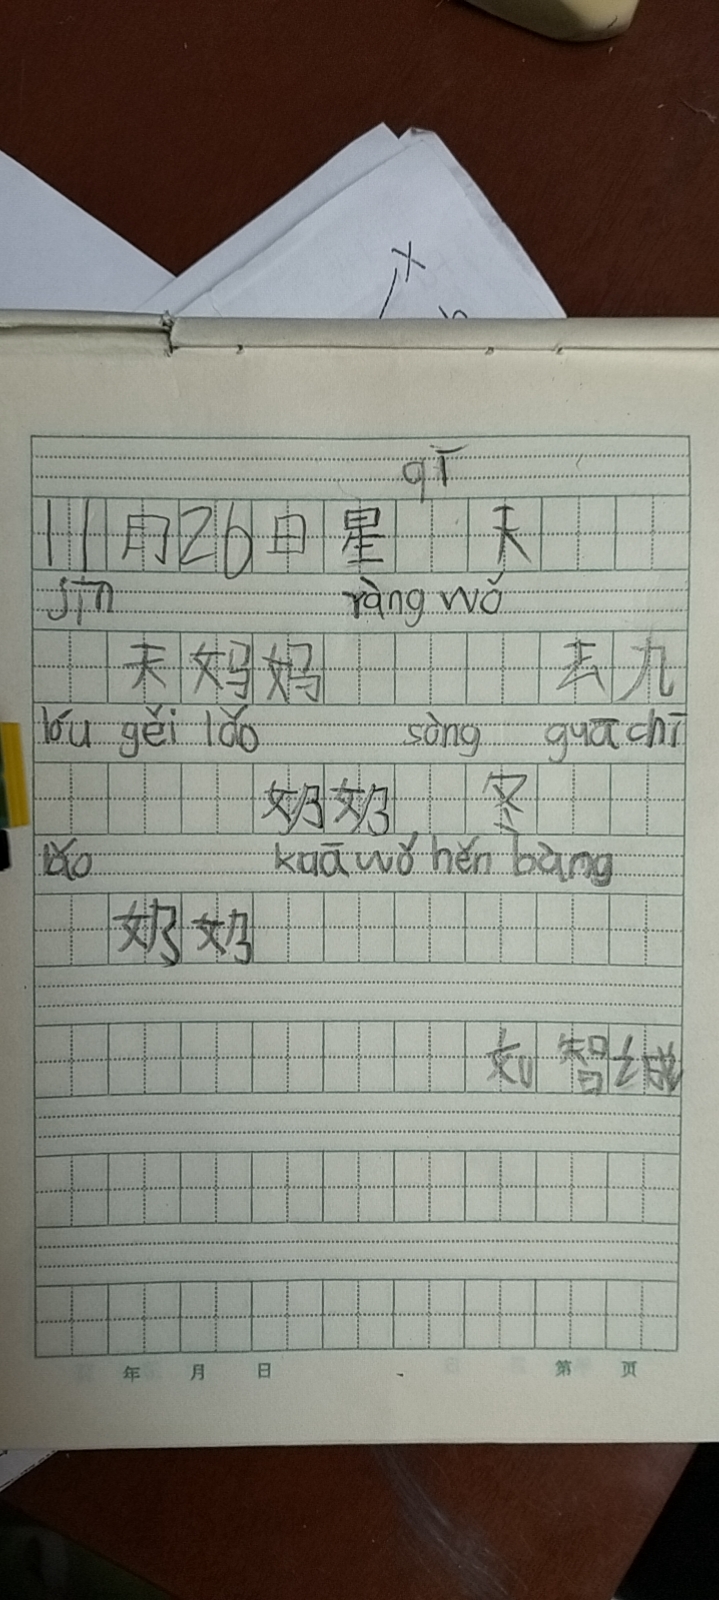 x
qī
11月26日星 天
jīn ràng wǒ
天妈妈 去九
lóu gěi lǎo sòng guā chī
奶奶 冬
lǎo kuā wǒ hěn bàng
奶奶
刘智城
年 月 日 第 页